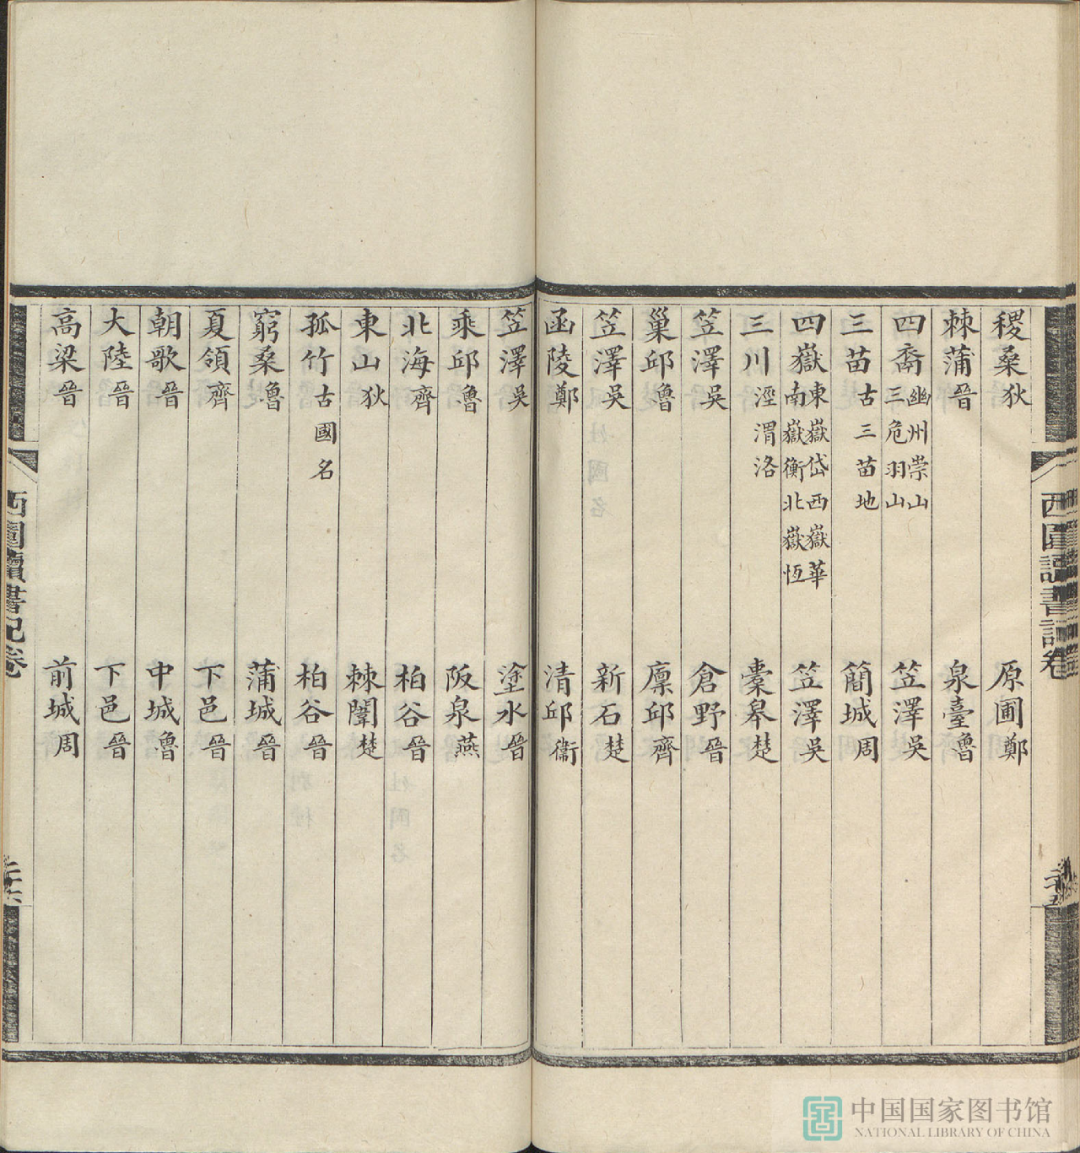 稷桑狄 原圃鄭
棘蒲晉 泉臺魯
四裔幽州崇山三危羽山 笠澤吳
三苗古三苗地 簡城周
四嶽東嶽岱西嶽華南嶽衡北嶽恆 笠澤吳
三川涇渭洛 橐皋楚
笠澤吳 倉野晉
巢邱魯 廪邱齊
笠澤吳 新石楚
函陵鄭 清邱衞
笠澤吳 塗水晉
乘邱魯 阪泉燕
北海齊 柏谷晉
東山狄 棘闈楚
孤竹古國名 柏谷晉
窮桑魯 蒲城晉
夏領齊 下邑晉
朝歌晉 中城魯
大陸晉 下邑晉
高梁晉 前城周
西圃讀書記卷 二十五
西圃讀書記卷 二十六
中国国家图书馆
NATIONAL LIBRARY OF CHINA